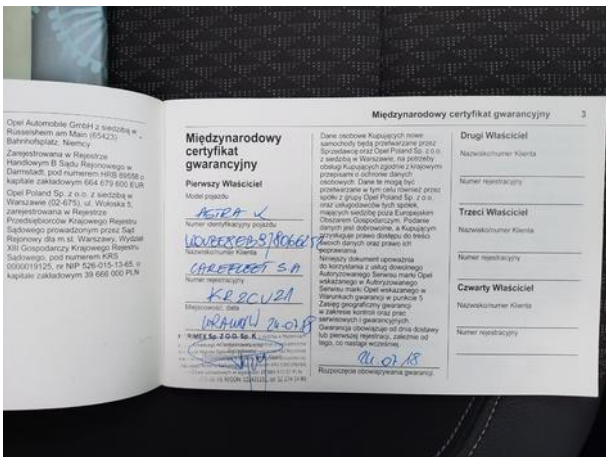 Opel Automobile GmbH z siedzibą w
Rüsselsheim am Main (65423)
Bahnhofsplatz, Niemcy
Zarejestrowana w Rejestrze
Handlowym B Sądu Rejonowego w
Darmstadt, pod numerem HRB 89558 o
kapitale zakładowym 664 679 600 EUR
Opel Poland Sp. z o.o. z siedzibą w
Warszawie (02-675), ul. Wołoska 5,
zarejestrowana w Rejestrze
Przedsiębiorców Krajowego Rejestru
Sądowego prowadzonym przez Sąd
Rejonowy dla m.st. Warszawy, Wydział
XIII Gospodarczy Krajowego Rejestru
Sądowego, pod numerem KRS
0000019125, nr NIP 526-015-13-65, o
kapitale zakładowym 39 666 000 PLN
Międzynarodowy certyfikat gwarancyjny 3
Międzynarodowy
certyfikat
gwarancyjny
Pierwszy Właściciel
Model pojazdu
ASTRA K
Numer identyfikacyjny pojazdu
Nazwisko/numer Klienta
CAREFLEET S A
Numer rejestracyjny
KR2CV21
Miejscowość, data
KRAKÓW 24.07.18
RIMEX Sp. Z O.O. Sp. K.
Dane osobowe Kupujących nowe
samochody będą przetwarzane przez
Sprzedawcę oraz Opel Poland Sp. z o.o.
z siedzibą w Warszawie, na potrzeby
obsługi Kupujących zgodnie z krajowymi
przepisami o ochronie danych
osobowych. Dane te mogą być
przetwarzane w tym celu również przez
spółki z grupy Opel Poland Sp. z o.o.
oraz usługodawców tych spółek,
mających siedzibę poza Europejskim
Obszarem Gospodarczym. Podanie
danych jest dobrowolne, a Kupującym
przysługuje prawo dostępu do treści
swoich danych oraz prawo ich
poprawiania.
Niniejszy dokument upoważnia
do korzystania z usług dowolnego
Autoryzowanego Serwisu marki Opel
wskazanego w Autoryzowanego
Serwisu marki Opel wskazanego w
Warunkach gwarancji w punkcie 5
Zasięg geograficzny gwarancji
w zakresie kontroli oraz prac
serwisowych i gwarancyjnych.
Gwarancja obowiązuje od dnia dostawy
lub pierwszej rejestracji, zależnie od
tego, co nastąpi wcześniej.
24.07.18
Rozpoczęcie obowiązywania gwarancji
Drugi Właściciel
Nazwisko/numer Klienta
Numer rejestracyjny
Trzeci Właściciel
Nazwisko/numer Klienta
Numer rejestracyjny
Czwarty Właściciel
Nazwisko/numer Klienta
Numer rejestracyjny